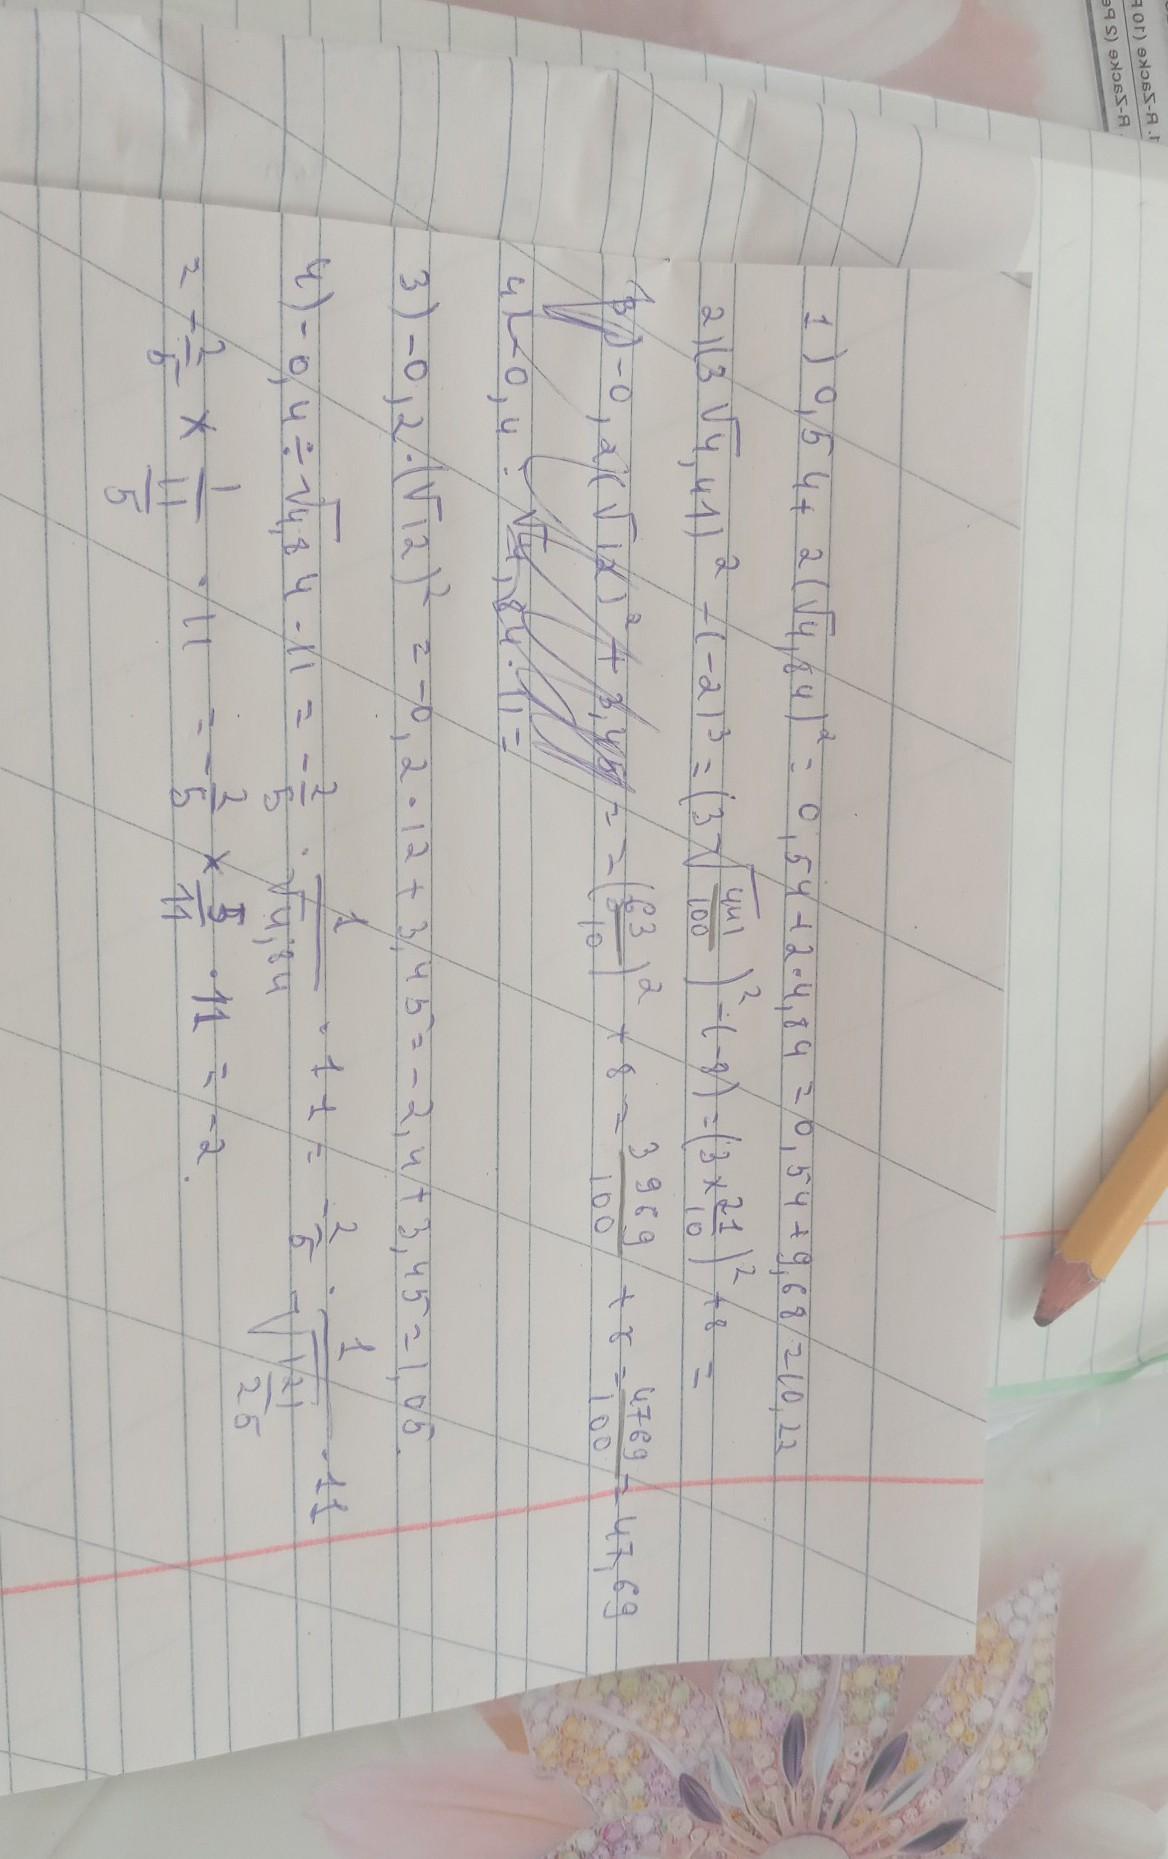 1) 0,54 + 2(√4,84)² = 0,54 + 2·4,84 = 0,54 + 9,68 = 10,22
2) (3√4,41)² - (-2)³ = (3√441/100)² - (-8) = (3×21/10)² + 8 =
= (63/10)² + 8 = 3969/100 + 8 = 4769/100 = 47,69
3) -0,2·(√12)² = -0,2·12 + 3,45 = -2,4 + 3,45 = 1,05.
4) -0,4 ÷ √4,84 · 11 = -2/5 · 1/√4,84 · 11 = -2/5 · 1/√121/25 · 11
= -2/5 × 1/11/5 · 11 = -2/5 × 5/11 · 11 = -2.